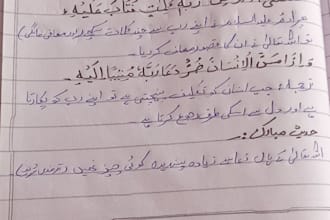 رَبِّهٖ كَلِمٰتٍ فَتَابَ عَلَيْهِ۔
آدم علیہ السلام نے اپنے رب سے چند کلمات سیکھے اور معافی مانگی
تو اللہ تعالیٰ نے ان کا قصور معاف کر دیا۔
وَاِذَا مَسَّ الْاِنْسَانَ ضُرٌّ دَعَا رَبَّهٗ مُنِيْبًا اِلَيْهِ۔
ترجمہ: جب انسان کو تکلیف پہنچتی ہے تو اپنے رب کو پکارتا
ہے اور دل سے اسکی طرف رجوع کرتا ہے
حدیث مبارکہ:
اللہ تعالیٰ کے ہاں دعا سے زیادہ پسندیدہ کوئی چیز نہیں (ترمذی)